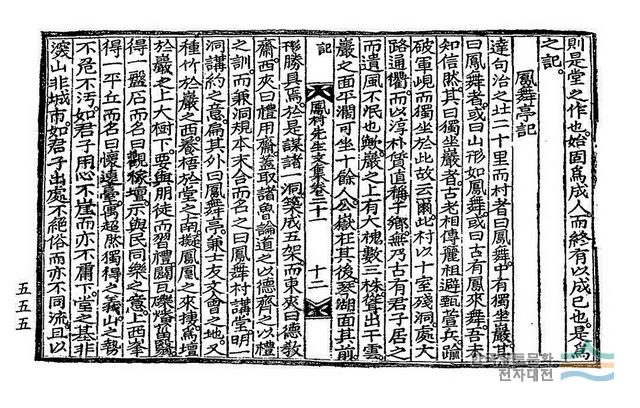 則是堂之作也。始固爲成人。而終有以成己也。是爲
之記。
鳳舞亭記
達句治之北二十里而村者曰鳳舞。中有獨坐巖。其
曰鳳舞者。或曰山形如鳳舞。或曰古有鳳來舞。吾未
知信然。其曰獨坐巖者。古老相傳。麗祖避甄萱兵。踰
破軍峴而獨坐於此故云爾。此村以十室殘洞。處大
路通衢。而以淳朴質直。稱于鄕。無乃古有君子居之
而遺風不泯也歟。巖之上有大槐數三株。聳出干雲。
巖之面平濶。可坐十餘人。公嶽枉其後。琴湖面其前。
記 鳳村先生文集卷二十一 十二
形勝具焉。於是謀諸一洞。築成五架。而東夾曰德敎
齋。西夾曰體用齋。蓋取諸魯論道之以德齊之以禮
之訓。而兼洞規本末。合而名之曰鳳舞村講堂。明一
洞講約之意。扁其外曰鳳舞亭。兼士友文會之地。又
種竹於巖之西。養梧於堂之南。擬鳳凰之來捿焉。壇
於巖之上大樹下。要與朋徒而習禮。闢瓦礫
得一盤石而名曰觀稼壇。示與民同樂之意。上西峯
得一平丘而名曰懷遠臺。寓超然獨得之義。山之勢
不危不汚。如君子用心不崖而亦不庸下。堂之基非
深山非城市。如君子出處不絶俗而亦不同流。且以
五五五
전자대전